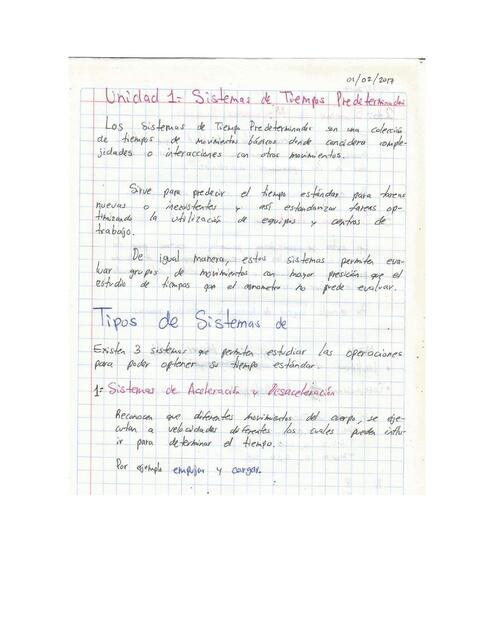 01/02/2017
Unidad 1: Sistemas de Tiempos Predeterminados
Los Sistemas de Tiempo Predeterminados son una colección
de tiempos de movimientos básicos donde concidera comple-
jidades o interacciones con otros movimientos.
Sirve para predecir el tiempo estándar para tareas
nuevas o inexistentes y así estandarizar tareas op-
timizando la utilización de equipos y centros de
trabajo.
De igual manera, estos sistemas permiten eva-
luar grupos de movimientos con mayor presición que el
estudio de tiempos que el cronometro no puede evaluar.
Tipos de Sistemas de
Existen 3 sistemas que permiten estudiar las operaciones
para poder optener su tiempo estándar.
1- Sistemas de Aceleración y Desaceleración
Reconocen que diferentes movimientos del cuerpo, se eje-
cutan a velocidades diferentes los cuales pueden influ-
ir para determinar el tiempo.
Por ejemplo empujar y cargar.